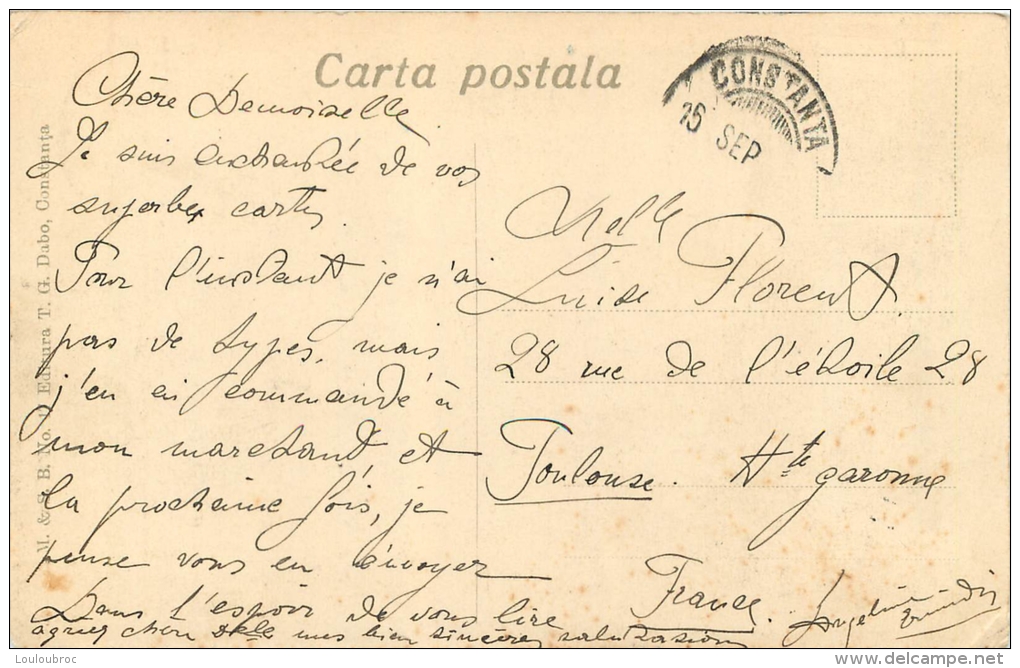 Carta postala
CONSTANTA
15 SEP
M. & S. B. No. Editura T. G. Dabo, Constanţa
Chère Demoiselle
Je suis enchantée de vos
superbes cartes.
Pour l'instant je n'ai
pas de types, mais
j'en ai commandé à
mon marchand et
la prochaine fois, je
pense vous en envoyer
Dans l'espoir de vous lire
agréez chère Delle mes bien sincères salutations
Melle
Luise Florent.
28 rue de l'étoile 28
Toulouse. Hte garonne
France.
Loubouroc